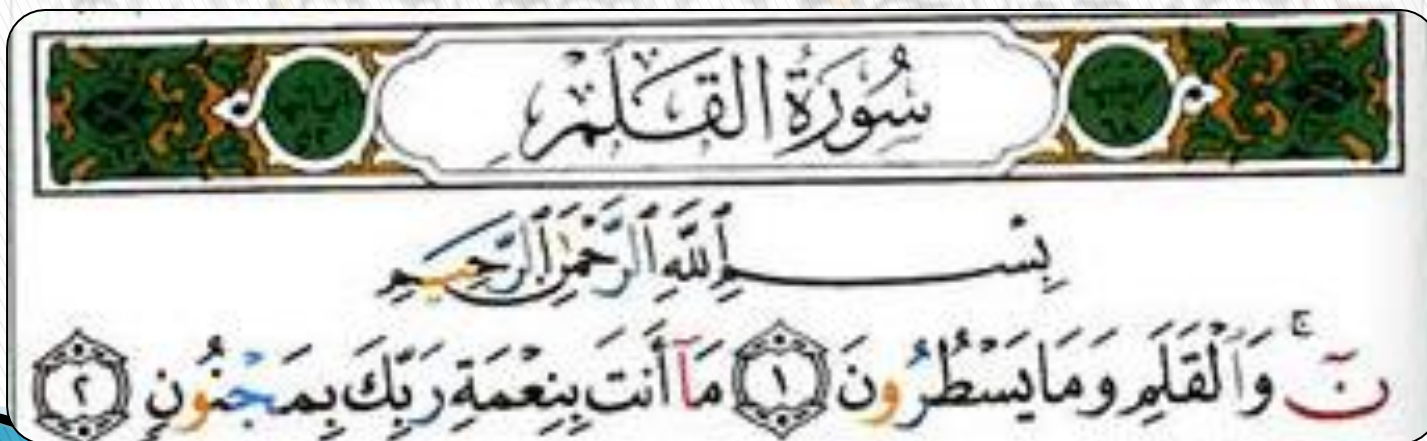 سُورَةُ الْقَلَمِ
بِسْمِ ٱللَّهِ ٱلرَّحْمَٰنِ ٱلرَّحِيمِ
نٓ ۚ وَٱلْقَلَمِ وَمَا يَسْطُرُونَ ١ مَآ أَنتَ بِنِعْمَةِ رَبِّكَ بِمَجْنُونٍ ٢